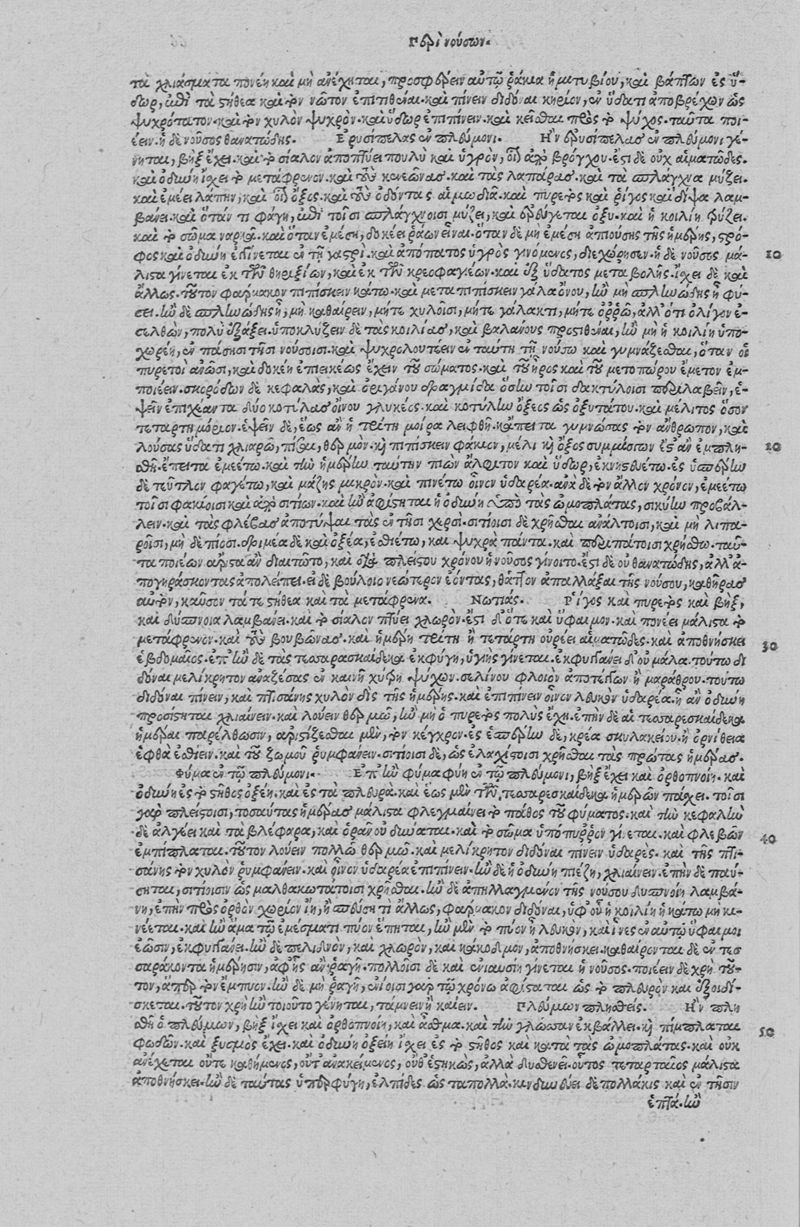 Περὶ νούσων.
τὰ χλιάσματα πονέη καὶ μὴ ἀνέχηται, προσφέρειν αὐτῷ ῥάκια ἡμιτυβίου, καὶ βάπτων ἐς ὕ-
δωρ, ἐπὶ τὰ στήθεα καὶ τὸν νῶτον ἐπιτιθέναι. καὶ πίνειν διδόναι κηρίον, ἐν ὕδατι ἀποβρέχων ὡς
ψυχρότατον. καὶ τὸν χυλὸν ψυχρὸν. καὶ ὕδωρ ἐπιπίνειν. καὶ κεῖσθαι πρὸς τὸ ψύχος. ταῦτα ποι-
έειν. ἡ δὲ νοῦσος θανατώδης. Ἐρυσίπελας ἐν πλεύμονι. Ἢν ἐρυσίπελας ἐν πλεύμονι γέ-
νηται, βὴξ ἔχει. καὶ τὸ σίαλον ἀποπτύει πουλὺ καὶ ὑγρὸν, οἷον ἀπὸ βρόγχου. ἔστι δὲ οὐχ αἱματῶδες.
καὶ ὀδύνη ἴσχει τὸ μετάφρενον. καὶ τοὺς κενεῶνας. καὶ τὰς λαπάρας. καὶ τὰ σπλάγχνα μύζει.
καὶ ἐμέει λάπην, καὶ οἷον ὄξος. καὶ τοὺς ὀδόντας αἱμωδιᾷ. καὶ πυρετὸς καὶ ῥίγος καὶ δίψα λαμ-
βάνει. καὶ ὅταν τι φάγῃ, ἐπὶ τοῖσι σπλάγχνοισι μύζει, καὶ ἐρεύγεται ὀξύ. καὶ ἡ κοιλίη τρύζει.
καὶ τὸ σῶμα ναρκᾷ. καὶ ὅταν ἐμέσῃ, δοκέει ῥάων εἶναι. ὅταν δὲ μὴ ἐμέσῃ ἀπιούσης τῆς ἡμέρης, στρό-
φος καὶ ὀδύνη ἐγγίνεται ἐν τῇ γαστρί. καὶ ἀπόπατος ὑγρὸς γινόμενος, διεχώρησεν. ἡ δὲ νοῦσος μά- 10
λιστα γίνεται ἐκ τῶν θωρηξίων, καὶ ἐκ τῶν κρεοφαγιέων. καὶ ἐξ ὕδατος μεταβολῆς. ἴσχει δὲ καὶ
ἄλλως. τοῦτον φάρμακον πιπίσκειν κάτω. καὶ μεταπιπίσκειν γάλα ὄνου, ἢν μὴ σπληνώδης ᾖ φύ-
σει. ἢν δὲ σπληνώδης ᾖ, μὴ καθαίρειν, μήτε χυλοῖσι, μήτε γάλακτι, μήτε ὀρρῷ, ἀλλ' ὅτι ὀλίγον ἐ-
σελθὸν, πολὺ ἐξάξει. ὑποκλύζειν δὲ τὰς κοιλίας, καὶ βαλάνους προστιθέναι, ἢν μὴ ἡ κοιλίη ὑπο-
χωρέῃ, ἐν πάσῃσι τῇσι νούσοισι. καὶ ψυχρολουτέειν ἐν ταύτῃ τῇ νούσῳ καὶ γυμνάζεσθαι, ὅταν οἱ
πυρετοὶ ἀνῶσι, καὶ δοκέῃ ἐπιεικέως ἔχειν τοῦ σώματος. καὶ τοῦ ἦρος καὶ τοῦ μετοπώρου ἔμετον ἐμ-
ποιέειν. σκορόδων δὲ κεφαλὰς, καὶ ὀριγάνου δραγμίδα ὅσην τοῖσι δακτύλοισι περιλαβεῖν, ἕ-
ψειν ἐπιχέαντα δύο κοτύλας οἴνου γλυκέος. καὶ κοτύλην ὄξεος ὡς ὀξυτάτου. καὶ μέλιτος ὅσον
τετάρτη μόριον. ἕψειν δὲ, ἕως ἂν ἡ τρίτη μοῖρα λειφθῇ. κἄπειτα γυμνάσας τὸν ἄνθρωπον, καὶ
λούσας ὕδατι χλιαρῷ, πῖσαι, θερμὸν. καὶ πιπίσκειν φάκιον, μέλι καὶ ὄξος συμμίσγων ἔστ' ἂν ἐμπλη- 20
σθῇ. ἔπειτα ἐμεέτω. καὶ τὴν ἡμέρην ταύτην πιὼν ἄλφιτον καὶ ὕδωρ, ἐκνηστευέτω. ἐς ἑσπέρην
δὲ τεῦτλον φαγέτω, καὶ μάζης μικρὸν. καὶ πινέτω οἶνον ὑδαρέα. ἀνὰ δὲ τὸν ἄλλον χρόνον, ἐμεέτω
τοῖσι φακίοισι καὶ ἀπὸ σιτίων. καὶ ἢν ἀφίστηται ἡ ὀδύνη ὑπὸ τὰς ὠμοπλάτας, σικύην προσβάλ-
λειν. καὶ τὰς φλέβας ἀποτύψαι τὰς ἐν τῇσι χερσί. σιτίοισι δὲ χρῆσθαι ἀνάλτοισι, καὶ μὴ λιπα-
ροῖσι, μὴ δὲ πίοσι. δριμέα δὲ καὶ ὀξέα, ἐσθιέτω, καὶ ψυχρὰ πάντα. καὶ περιπάτοισι χρήσθω. ταῦ-
τα ποιέων ἄριστα ἂν διαιτῷτο, καὶ διὰ πλείστου χρόνου ἡ νοῦσος γίνοιτο. ἔστι δὲ οὐ θανατώδης, ἀλλ' ἀ-
πογηράσκοντας ἀπολείπει. εἰ δὲ βούλοιο νεώτερον ἐόντας, θᾶττον ἀπαλλάξαι τῆς νούσου, καθήρας
αὐτὸν, καῦσον τά τε στήθεα καὶ τὰ μετάφρενα. Νωτιάς. Ῥίγος καὶ πυρετὸς καὶ βὴξ,
καὶ δύσπνοια λαμβάνει. καὶ τὸ σίαλον πτύει χλωρόν. ἔστι δ' ὅτε καὶ ὕφαιμον. καὶ πονέει μάλιστα τὸ
μετάφρενον. καὶ τοὺς βουβῶνας. καὶ ἡμέρῃ τρίτῃ ἢ τετάρτῃ οὐρέει αἱματῶδες. καὶ ἀποθνήσκει 30
ἑβδομαῖος. ἐπ' ἢν δὲ τὰς τεσσαρεσκαίδεκα ἐκφύγῃ, ὑγιὴς γίνεται. ἐκφυγγάνει δ' οὐ μάλα. τούτῳ δι
δόναι μελίκρητον ἀναζέσας ἐν καινῇ χύτρῃ. ψύχων. σελίνου φλοιὸν ἀποτέγγων ἢ μαράθρου. τούτῳ
διδόναι πίνειν, καὶ πτισάνης χυλὸν δὶς τῆς ἡμέρης. καὶ ἐπιπίνειν οἶνον λευκὸν ὑδαρέα. ᾗ ἂν ὀδύνη
προσίστηται χλιαίνειν. καὶ λούειν θερμῷ, ἢν μὴ ὁ πυρετὸς πολὺς ἔχῃ. ἐπὴν δὲ αἱ τεσσαρεσκαίδεκα
ἡμέραι παρέλθωσιν, ἀριστίζεσθαι μὲν, τὸν κέγχρον. ἐς ἑσπέρην δὲ, κρέα σκυλακείου. ἢ ὀρνίθεια
ἑφθὰ ἐσθίειν. καὶ τοῦ ζωμοῦ ῥυμφάνειν. σιτίοισι δὲ, ὡς ἐλαχίστοισι χρῆσθαι τὰς πρώτας ἡμέρας.
Φῦμα ἐν τῷ πλεύμονι. Ἐπ' ἢν φῦμα φύῃ ἐν τῷ πλεύμονι, βὴξ ἔχει καὶ ὀρθοπνοίη. καὶ
ὀδύνη ἐς τὸ στῆθος ὀξέη. καὶ ἐς τὰ πλευρά. καὶ ἕως μὲν τῶν τεσσαρεσκαίδεκα ἡμερῶν πάσχει. τοῖσι
γὰρ πλείστοισι, τοσαύτας ἡμέρας μάλιστα φλεγμαίνει τὸ πάθος τοῦ φύματος. καὶ τὴν κεφαλὴν
δὲ ἀλγέει καὶ τὰ βλέφαρα, καὶ ὁρᾶν οὐ δύναται. καὶ τὸ σῶμα ὑπόπυρρον γίνεται. καὶ φλεβῶν 40
ἐμπίπλαται. τοῦτον λούειν πολλῷ θερμῷ. καὶ μελίκρητον διδόναι πίνειν ὑδαρές. καὶ τῆς πτι-
σάνης τὸν χυλὸν ῥυμφάνειν. καὶ οἶνον ὑδαρέα ἐπιπίνειν. ἢν δὲ ἡ ὀδύνη πιέζῃ, χλιαίνειν. ἐπὴν δὲ παύ-
σηται, σιτίοισιν ὡς μαλθακωτάτοισι χρῆσθαι. ἢν δὲ ἀπηλλαγμένον τῆς νούσου δύσπνοιη λαμβά-
νῃ, ἐπὴν πρὸς ὄρθον χωρίον ἴῃ, ἢ σπεύσῃ τι ἄλλως, φάρμακον διδόναι, ὑφ' οὗ ἡ κοιλίη ἡ κάτω μὴ κι-
νέεται. καὶ ἢν ἅμα τῷ ἐμέσματι πύον ἕπηται, ἢν μὲν τὸ πύον ᾖ λευκὸν, καὶ ἶνες ἐν αὐτῷ ὕφαιμοι
ἐῶσιν, ἐκφυγγάνει. ἢν δὲ πελιδνὸν, καὶ χλωρὸν, καὶ κάκοδμον, ἀποθνήσκει. καθαίρονται δὲ ἐν τεσ
σαράκοντα ἡμέρῃσιν, ἀφ' ἧς ἂν ῥαγῇ. πολλοῖσι δὲ καὶ ἐνιαυσίη γίνεται ἡ νοῦσος. ποιέειν δὲ χρὴ τοῦ-
τον, ἅπερ τὸν ἔμπυον. ἢν δὲ μὴ ῥαγῇ, ἐνίοισι γὰρ τῷ χρόνῳ ἀφίσταται ὡς τὸ πλευρὸν καὶ ἐξοιδί-
σκεται. τοῦτον χρὴ ἢν τοιοῦτο γένηται, τάμνειν ἢ καίειν. Πλεύμων πλησθείς. Ἢν πλη
σθῇ ὁ πλεύμων, βὴξ ἴσχει καὶ ὀρθοπνοίη, καὶ ἆσθμα. καὶ τὴν γλῶσσαν ἐκβάλλει. καὶ πίμπλαται 50
φωδῶν. καὶ ξυσμὸς ἔχει. καὶ ὀδύνη ὀξείη ἴσχει ἐς τὸ στῆθος καὶ κατὰ τὰς ὠμοπλάτας. καὶ οὐκ
ἀνέχεται οὔτε καθήμενος, οὔτ' ἀνακείμενος, οὐδ' ἑστηκὼς, ἀλλὰ δυσθενεῖ. οὗτος τεταρταῖος μάλιστα
ἀποθνήσκει. ἢν δὲ ταύτας ὑπερφύγῃ, ἐλπίδες ὡς ταπολλά. κινδυνεύει δὲ πολλάκις καὶ ἐν τῇσιν
ἑπτά. ἢν